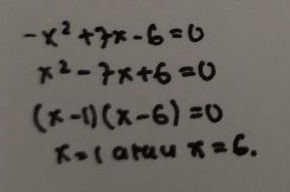 -x² + 7x - 6 = 0
x² - 7x + 6 = 0
(x-1)(x-6) = 0
x = 1 atau x = 6.